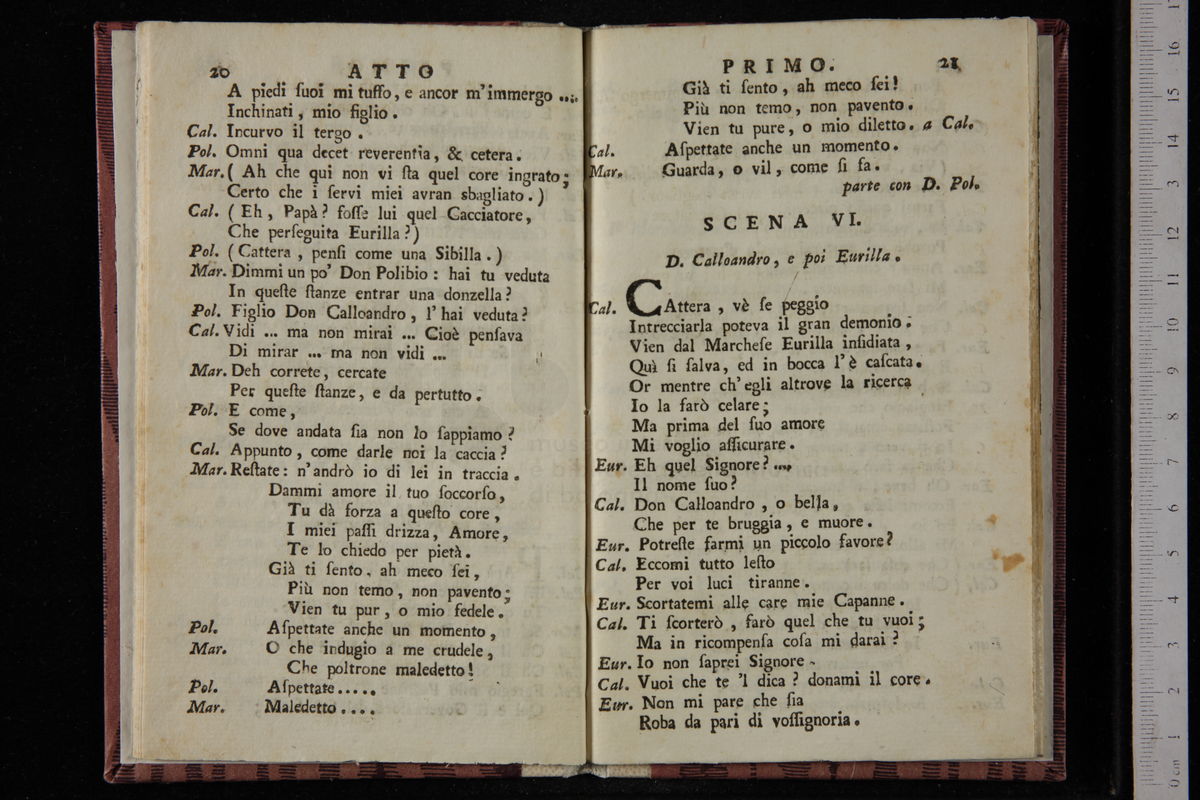 20 ATTO
A piedi ſuoi mi tuffo, e ancor m'immergo ....
Inchinati, mio figlio.
Cal. Incurvo il tergo.
Pol. Omni qua decet reverentia, & cetera.
Mar. ( Ah che qui non vi ſta quel core ingrato;
Certo che i ſervi miei avran sbagliato. )
Cal. ( Eh, Papà? foſſe lui quel Cacciatore,
Che perſeguita Eurilla? )
Pol. ( Cattera, penſi come una Sibilla. )
Mar. Dimmi un po' Don Polibio: hai tu veduta
In queſte ſtanze entrar una donzella?
Pol. Figlio Don Calloandro, l'hai veduta?
Cal. Vidi ... ma non mirai ... Cioè penſava
Di mirar ... ma non vidi ...
Mar. Deh correte, cercate
Per queſte ſtanze, e da pertutto.
Pol. E come,
Se dove andata ſia non lo ſappiamo?
Cal. Appunto, come darle noi la caccia?
Mar. Reſtate: n'andrò io di lei in traccia.
Dammi amore il tuo ſoccorſo,
Tu dà forza a queſto core,
I miei paſſi drizza, Amore,
Te lo chiedo per pietà.
Già ti ſento, ah meco ſei,
Più non temo, non pavento;
Vien tu pur, o mio fedele.
Pol. Aſpettate anche un momento,
Mar. O che indugio a me crudele,
Che poltrone maledetto!
Pol. Aſpettate.....
Mar. Maledetto....
PRIMO. 21
Già ti ſento, ah meco ſei!
Più non temo, non pavento.
Vien tu pure, o mio diletto. a Cal.
Cal. Aſpettate anche un momento.
Mar. Guarda, o vil, come ſi fa.
parte con D. Pol.
SCENA VI.
D. Calloandro, e poi Eurilla.
Cal. CAttera, vè ſe peggio
Intrecciarla poteva il gran demonio.
Vien dal Marcheſe Eurilla inſidiata,
Quì ſi ſalva, ed in bocca l'è caſcata.
Or mentre ch'egli altrove la ricerca
Io la farò celare;
Ma prima del ſuo amore
Mi voglio aſſicurare.
Eur. Eh quel Signore? ....
Il nome ſuo?
Cal. Don Calloandro, o bella,
Che per te bruggia, e muore.
Eur. Potreſte farmi un piccolo favore?
Cal. Eccomi tutto leſto
Per voi luci tiranne.
Eur. Scortatemi alle care mie Capanne.
Cal. Ti ſcorterò, farò quel che tu vuoi;
Ma in ricompenſa coſa mi darai?
Eur. Io non ſaprei Signore.
Cal. Vuoi che te 'l dica? donami il core.
Eur. Non mi pare che ſia
Roba da pari di voſſignoria.